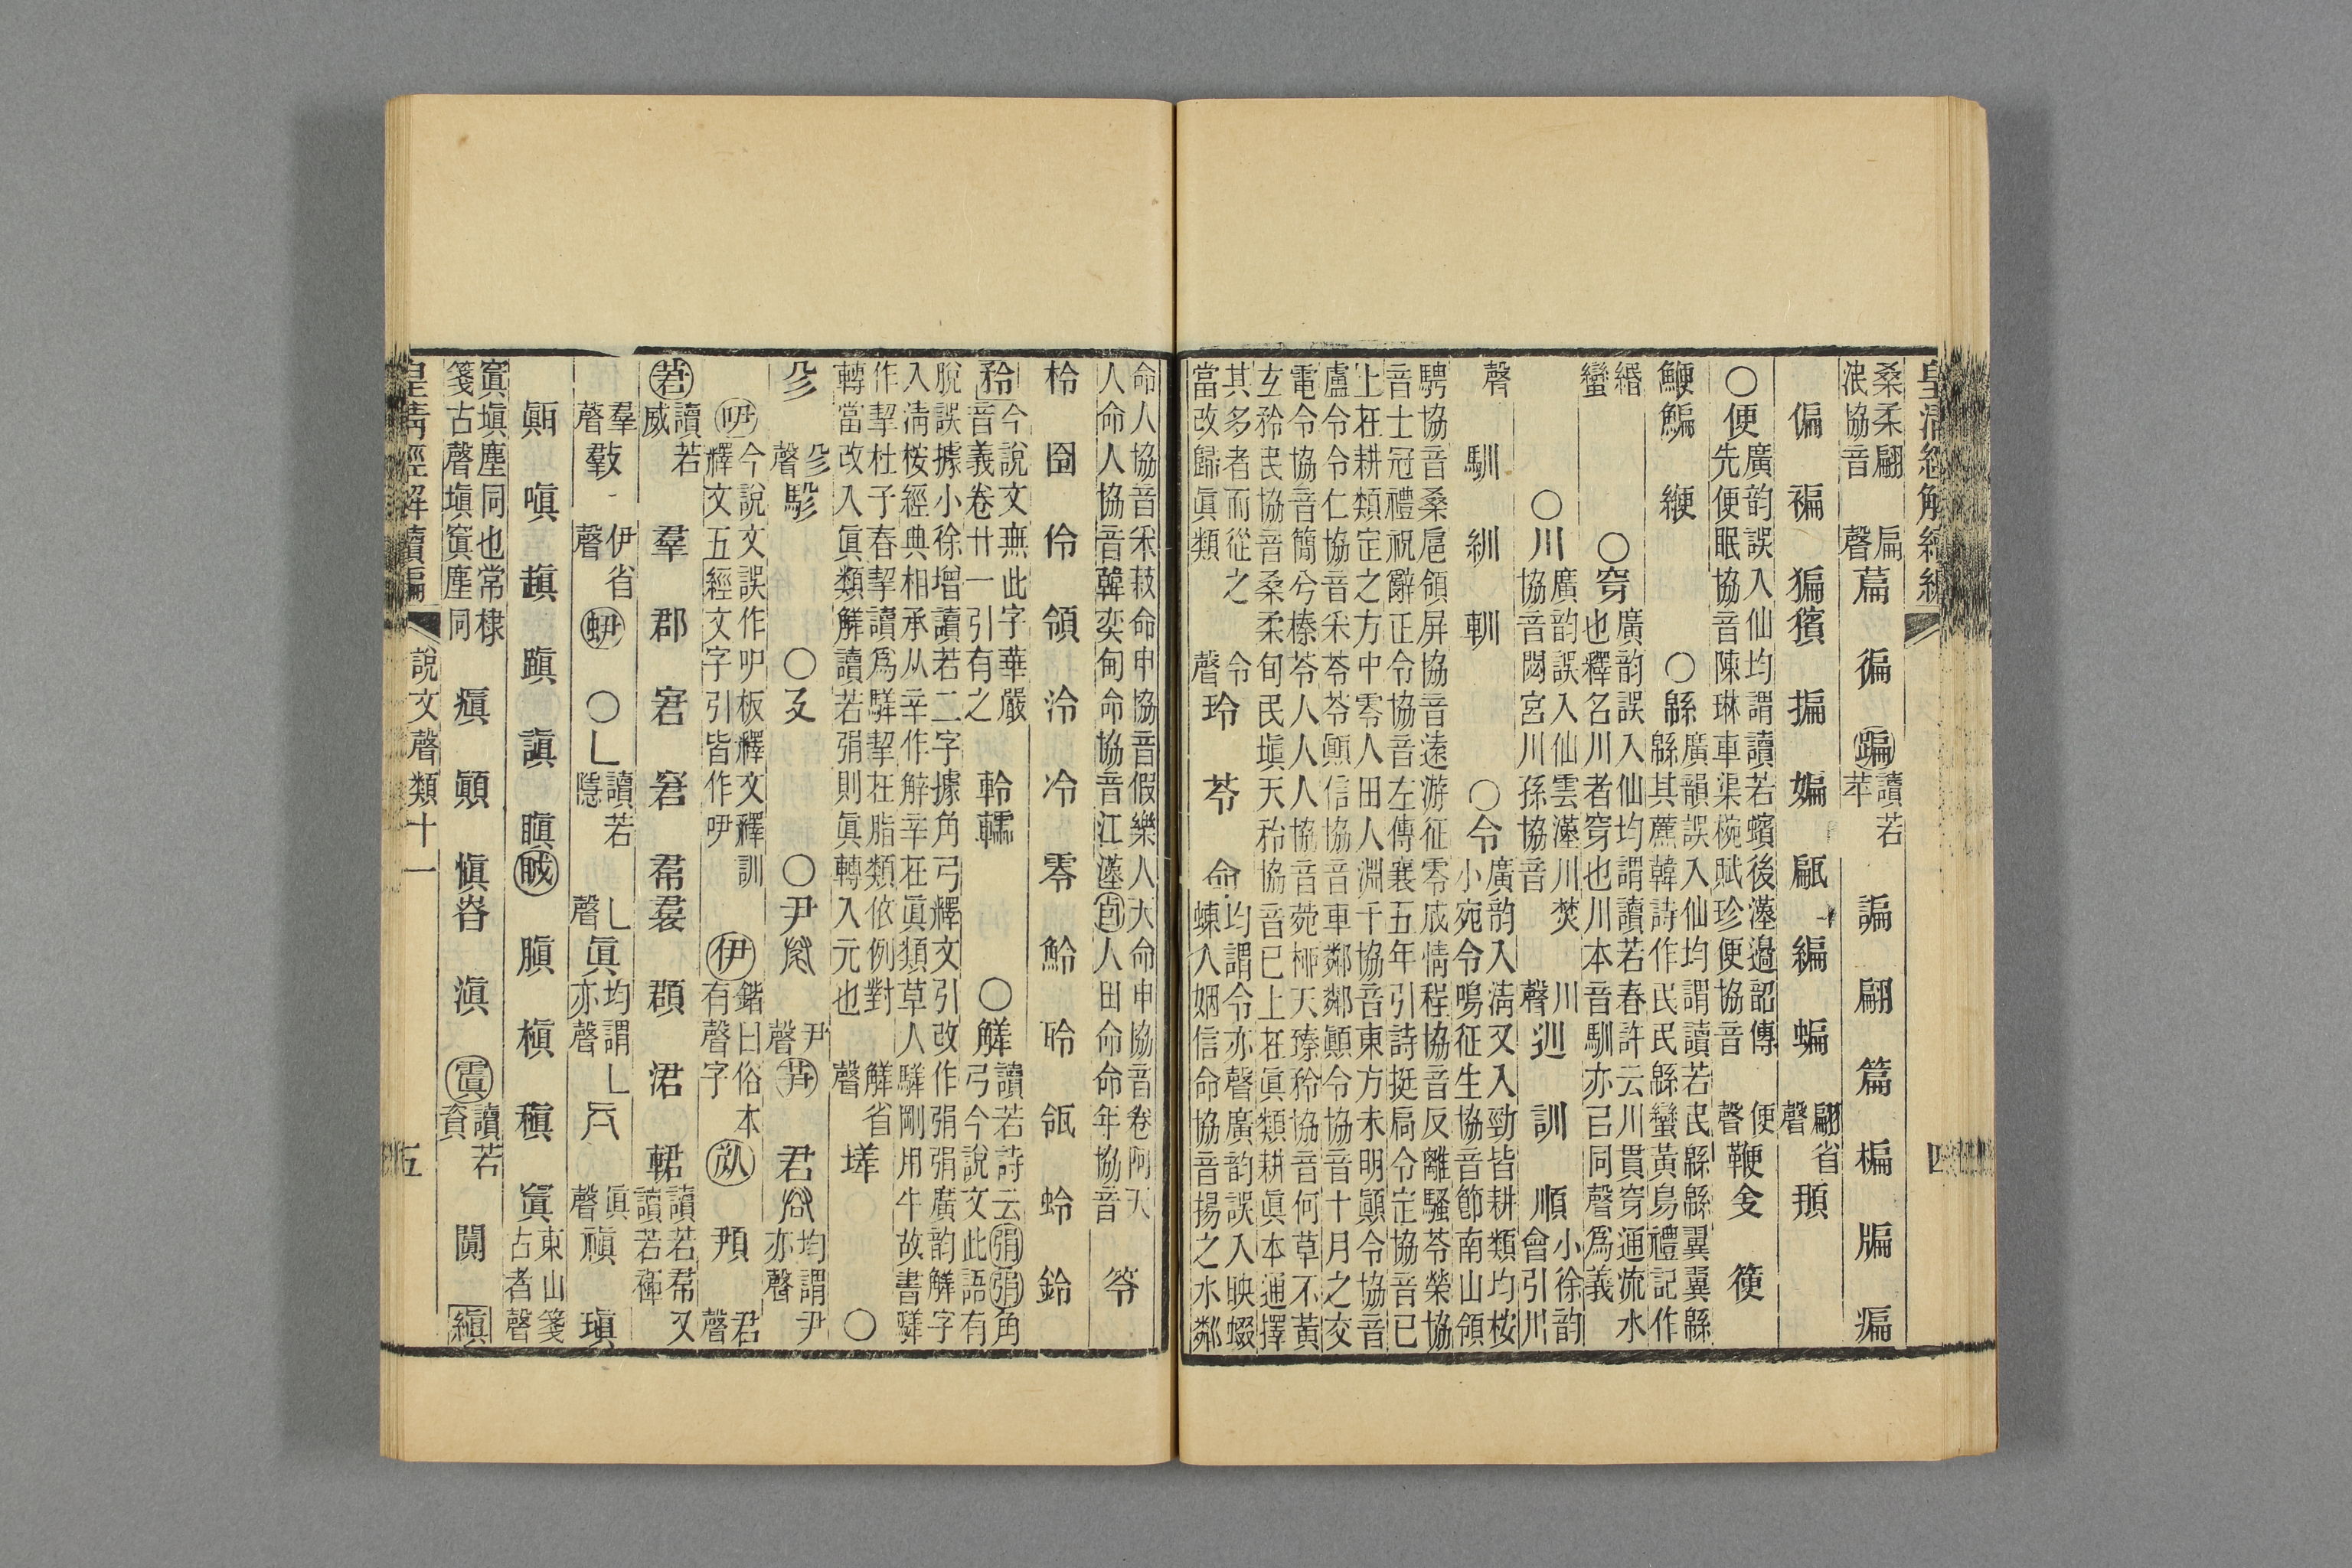 皇清經解續編
桑柔翩泯協音 扁聲 萹 徧 蹁 讀若苹 諞 翩 篇 楄 牑 㾫
偏 褊 猵 獱 揙 媥 甂 編 蝙 翩省聲 㻞
○便 廣韵誤入仙均謂讀若蠙後漢邊韶傳先便眠協音陳琳車渠椀賦珍便協音 便聲 鞭 㕁 箯
鯾 鯿 緶 ○緜 廣韻誤入仙均謂讀若民緜緜翼翼緜緜其麃韓詩作民民緜蠻黃鳥禮記作
緡蠻 ○穿 廣韵誤入仙均謂讀若春許云川貫穿通流水也釋名川者穿也川本音馴亦已同聲爲義
○川 廣韵誤入仙雲漢川焚協音閟宮川孫協音 川聲 巡 訓 順 小徐韵會引川
聲 馴 紃 軐 ○令 廣韵入淸又入勁皆耕類均桉小宛令鳴征生協音節南山領
騁協音桑扈領屏協音遠游征零成情程協音反離騷苓榮協音士冠禮祝辭正令協音左傳襄五年引詩挺扃令定協音已
上在耕類定之方中零人田人淵千協音東方未明顚令協音盧令令仁協音采苓苓顚信協音車鄰鄰顚令協音十月之交
電令協音簡兮榛苓人人人協音菀栁天臻矜協音何草不黃玄矜民協音桑柔旬民塡天矜協音已上在眞類耕眞本通擇
其多者而從之當改歸眞類 令聲 玲 苓 命 均謂令亦聲廣韵誤入映蝃蝀入姻信命協音揚之水鄰
命人協音采菽命申協音假樂人天命申協音卷阿天人命人協音韓奕甸命協音江漢人田命命年協音 笭
柃 囹 伶 領 泠 冷 零 魿 聆 瓴 蛉 鈴
矜 今說文無此字華嚴音義卷廿一引有之 軨 轜 ○觲 讀若詩云弲弲角弓今說文此語有
脫誤據小徐增讀若二字據角弓釋文引改作弲弲廣韵觲字入淸桉經典相承从辛作觧辛在眞類草人騂剛用牛故書騂
作挈杜子春挈讀爲騂挈在脂類依例對轉當改入眞類觲讀若弲則眞轉入元也 觲省聲 垟 ○
㐱 㐱聲 駗 ○㕛 ○尹 尹聲 芛 君 均謂尹亦聲
吚 今說文誤作吚板釋文釋訓釋文五經文字引皆作吚 伊 鍇曰俗本有聲字 㕥 頵 君聲
莙 讀若威 羣 郡 宭 窘 帬 裠 頵 涒 輑 讀若帬又讀若褌
羣聲 㪊 伊省聲 蛜 ○乚 讀若隱 乚聲 眞 均謂乚亦聲 𠂢 眞聲 禛 瑱
䫅 嗔 趁 蹎 謓 瞋 䀏 膹 槇 稹 窴 東山箋古者聲
窴塡塵同也常棣箋古聲塡窴塵同 瘨 顚 愼 㫺 滇 霣 讀若資 闐 縝
皇清經解續編 說文聲類十一 五